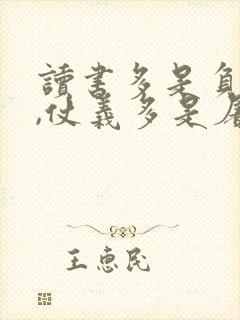 讀書多是負
,仗義多是屠
王惠民